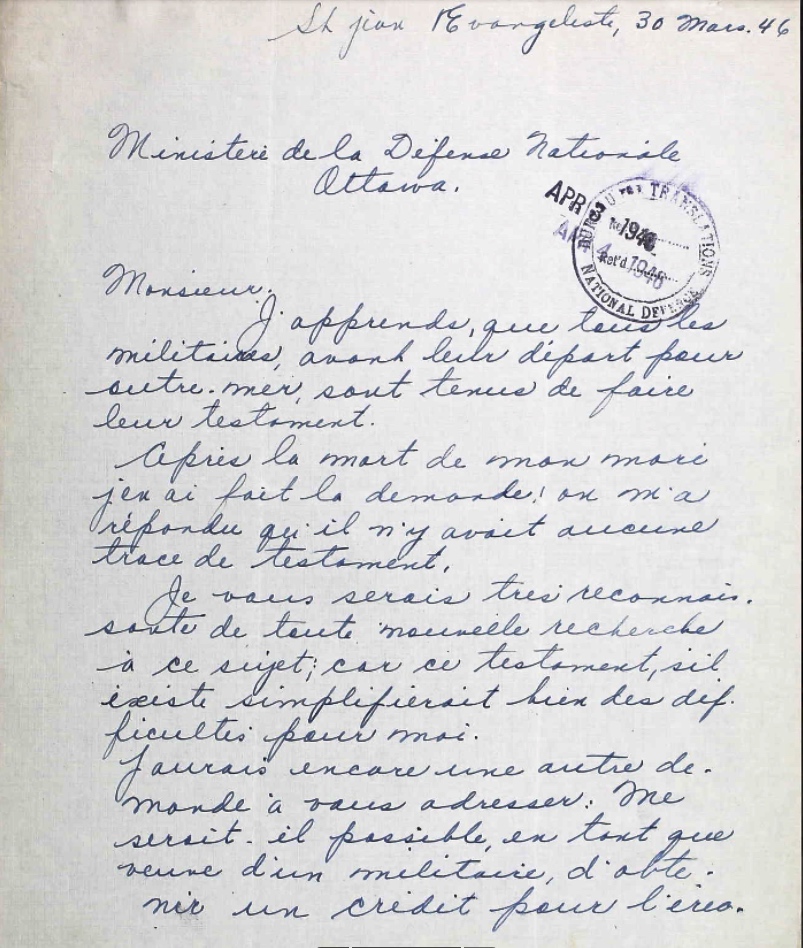 St jean l'Evangeliste, 30 Mars. 46
Ministère de la Défense Nationale
Ottawa.
APR 3 1946
APR 4 1946
BUREAU FOR TRANSLATIONS
Ret'd
NATIONAL DEFENCE
Monsieur:
J'apprends, que tous les
militaires, avant leur départ pour
outre-mer, sont tenus de faire
leur testament.
Après la mort de mon mari
j'en ai fait la demande; on m'a
répondu qu'il n'y avait aucune
trace de testament.
Je vous serais très reconnais-
sante de toute nouvelle recherche
à ce sujet; car ce testament, s'il
existe simplifierait bien des dif-
ficultés pour moi.
J'aurais encore une autre de-
mande à vous adresser: Me
serait-il possible, en tant que
veuve d'un militaire, d'obte-
nir un crédit pour l'érec-